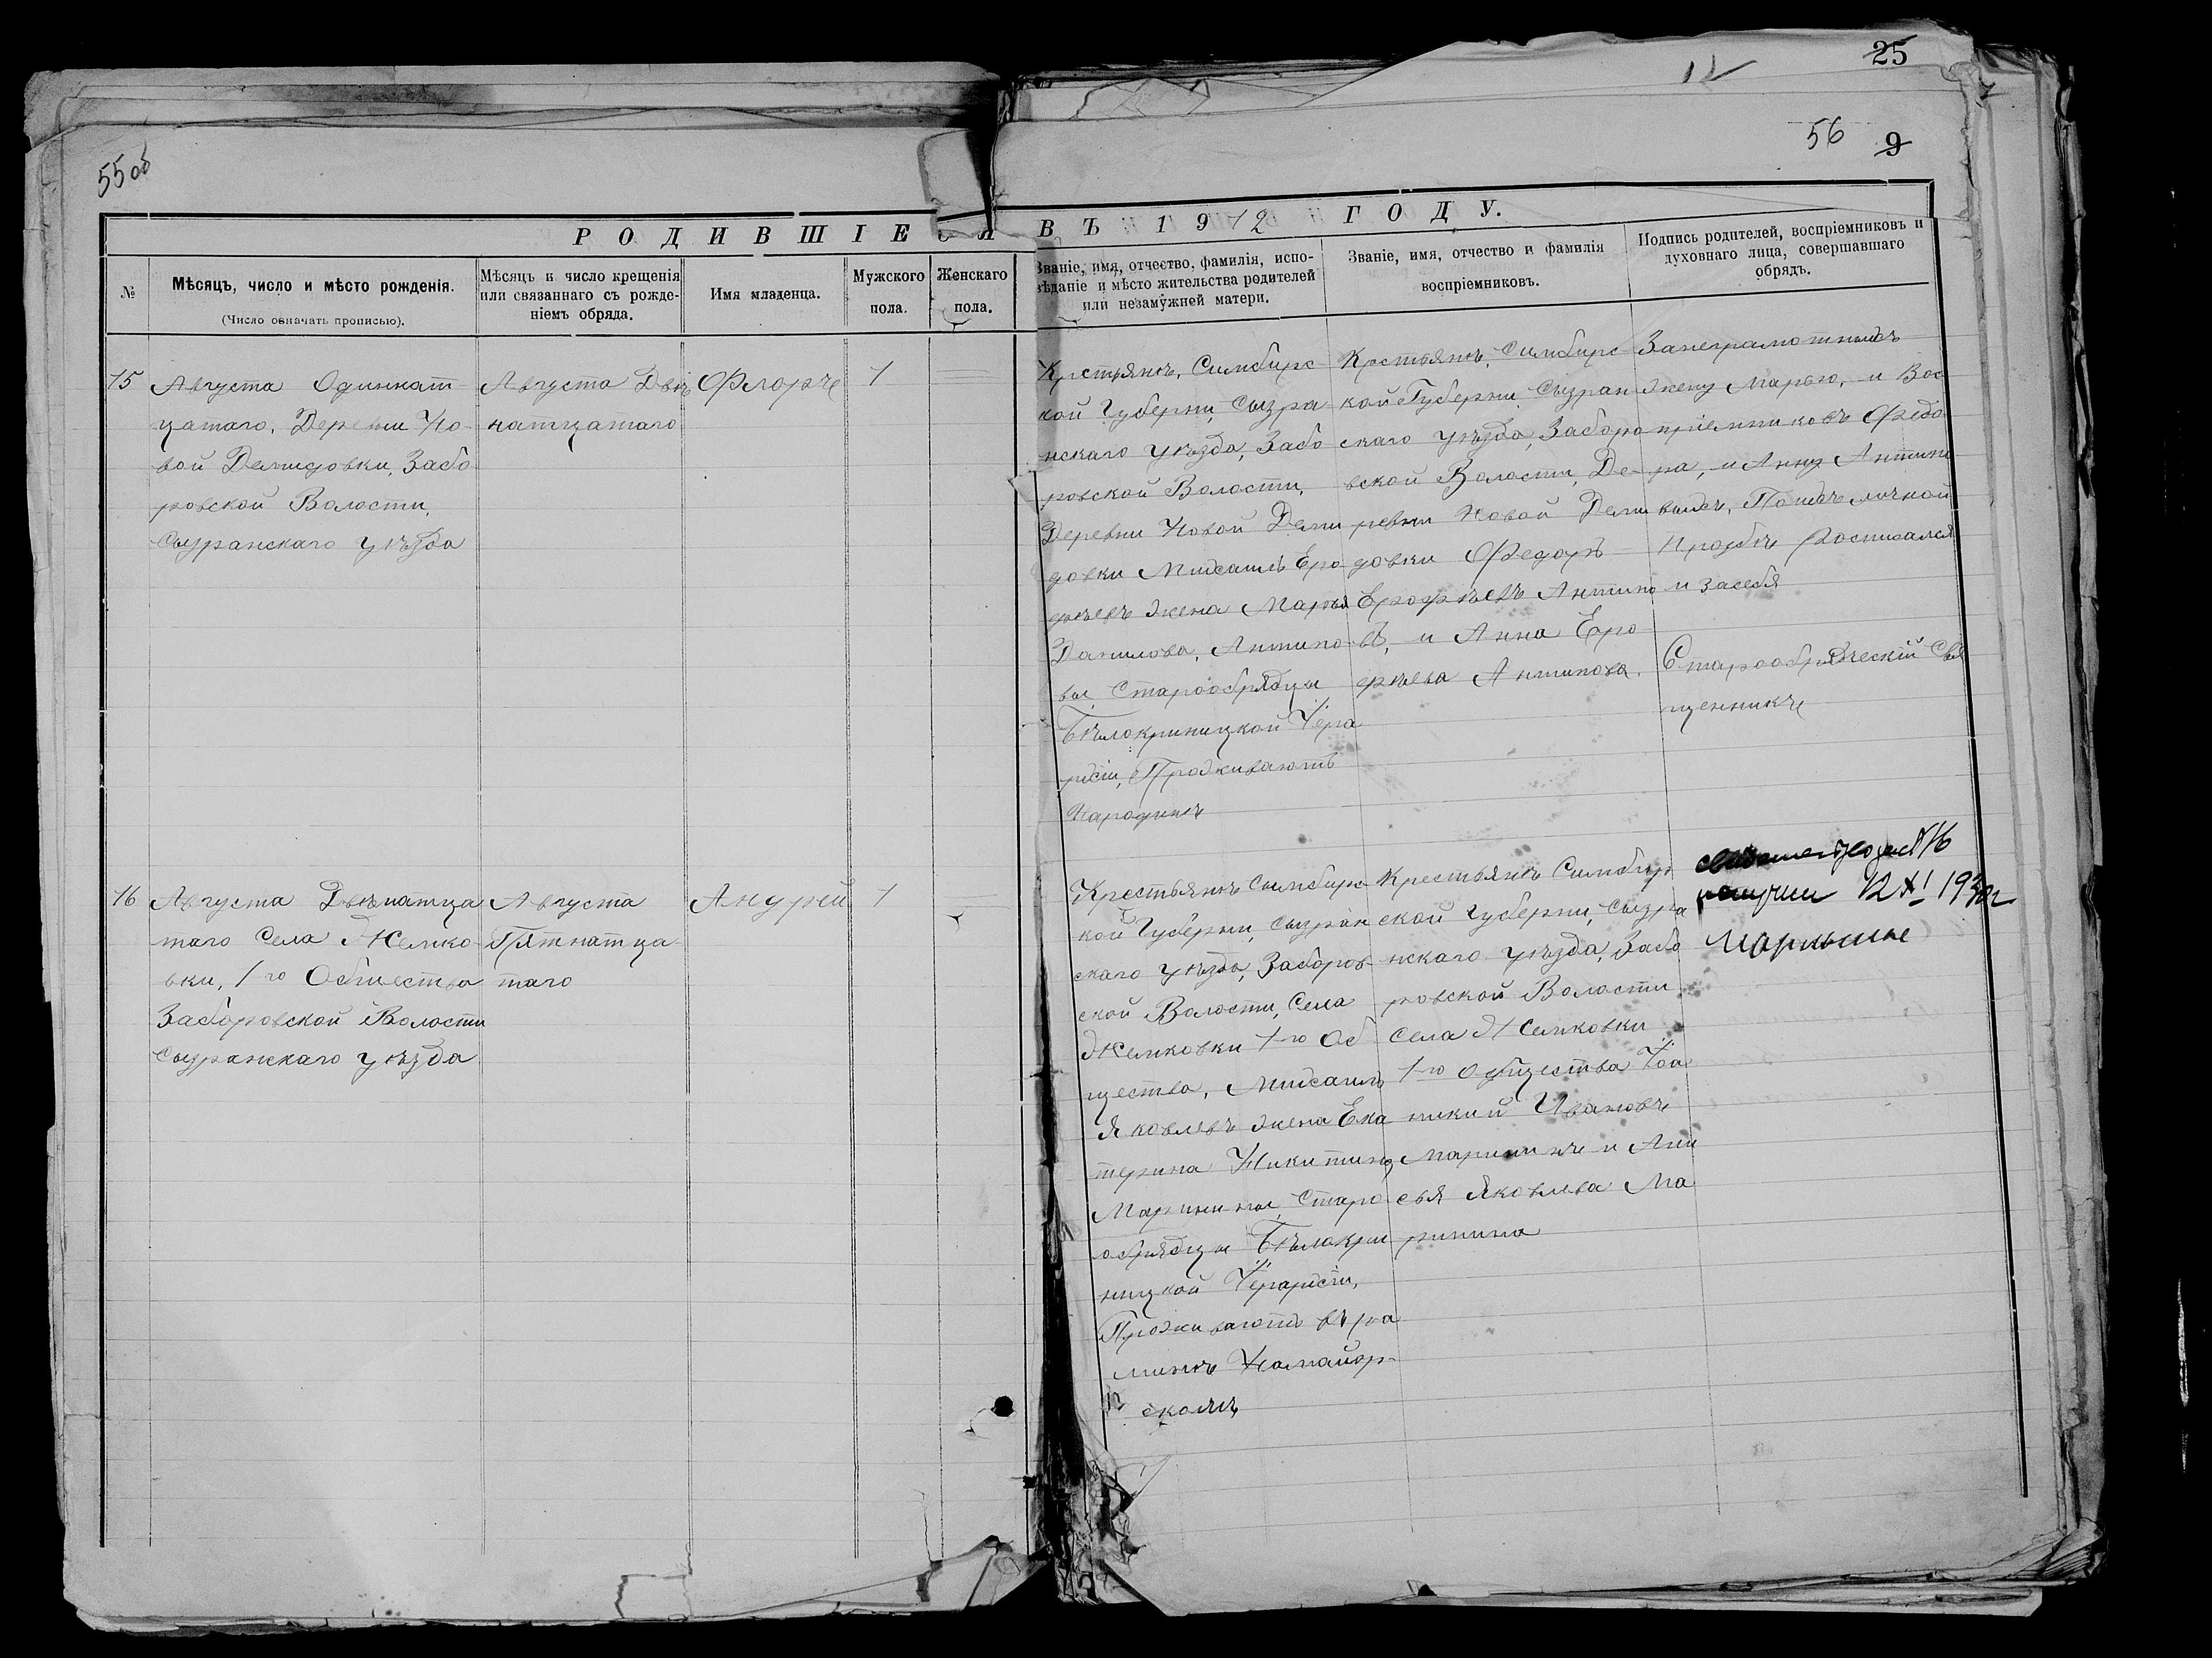 25
12
55 об
56 9
РОДИВШІЕСЯ ВЪ 1912 ГОДУ.
№
Мѣсяцъ, число и мѣсто рожденія.
(Число означать прописью).
Мѣсяцъ и число крещенія
или связаннаго съ рожде-
ніемъ обряда.
Имя младенца.
Мужского
пола.
Женскаго
пола.
Званіе, имя, отчество, фамилія, испо-
вѣданіе и мѣсто жительства родителей
или незамужней матери.
Званіе, имя, отчество и фамилія
воспріемниковъ.
Подпись родителей, воспріемниковъ и
духовнаго лица, совершавшаго
обрядъ.
15
Августа Одиннат
цатаго, Деревни Но-
вой Демидовки, Забо
ровской Волости,
Сызранскаго уѣзда
Августа Двѣ
натцатаго
Флоръ
1
Крстьянѣ, Симбирс
кой Губерни, Сызра
нскаго уѣзда, Забо
ровской Волости,
Деревни Новой Деми
довки Михаилъ Еро
фѣевъ жена Марья
Данилова, Антипо
вы, Старообрядцы
Бѣлокриницкой Іера
рхіи, Проживаютъ
Народинѣ
Крстьянѣ, Симбирс
кой Губерни, Сызран
скаго уѣзда, Заборо
вской Волости, Де-
ревни Новой Деми
довки Федоръ
Ерофѣевъ Антипо
въ, и Анна Еро
фѣева Антипова.
Занеграмотныхъ
жену Марью, и Вос
пріемниковъ Федо
ра, и Анну Антипо
выхъ, Поихъ личной
прозбѣ Росписался
и засебя
Старообрядческій Свя
щенникъ
16
Августа Двѣнатца
таго Села Жемко-
вки, 1го Общества
Заборовской Волости
Сызранскаго уѣзда
Августа
Пятнатца
таго
Андрей
1
Крестьянѣ Симбирс
кой Губерни, Сызран
скаго уѣзда, Заборов-
ской Волости, Села
Жемковки 1-го Об
щества, Михаилъ
Яковлевъ жена Ека
терина Никитина
Маринины, Старо
обрядцы Бѣлокри
ницкой Іерархіи,
Проживаютъ
скомъ
Крестьянѣ Симбир
ской Губерни, Сызра
нскаго уѣзда, Забо
ровской Волости
села Жемковки
1-го Общества Іоа
никий Ивановъ
Марининъ и Ани
сья Яковлева Ма
ринина
№16
получил 12 XI 193